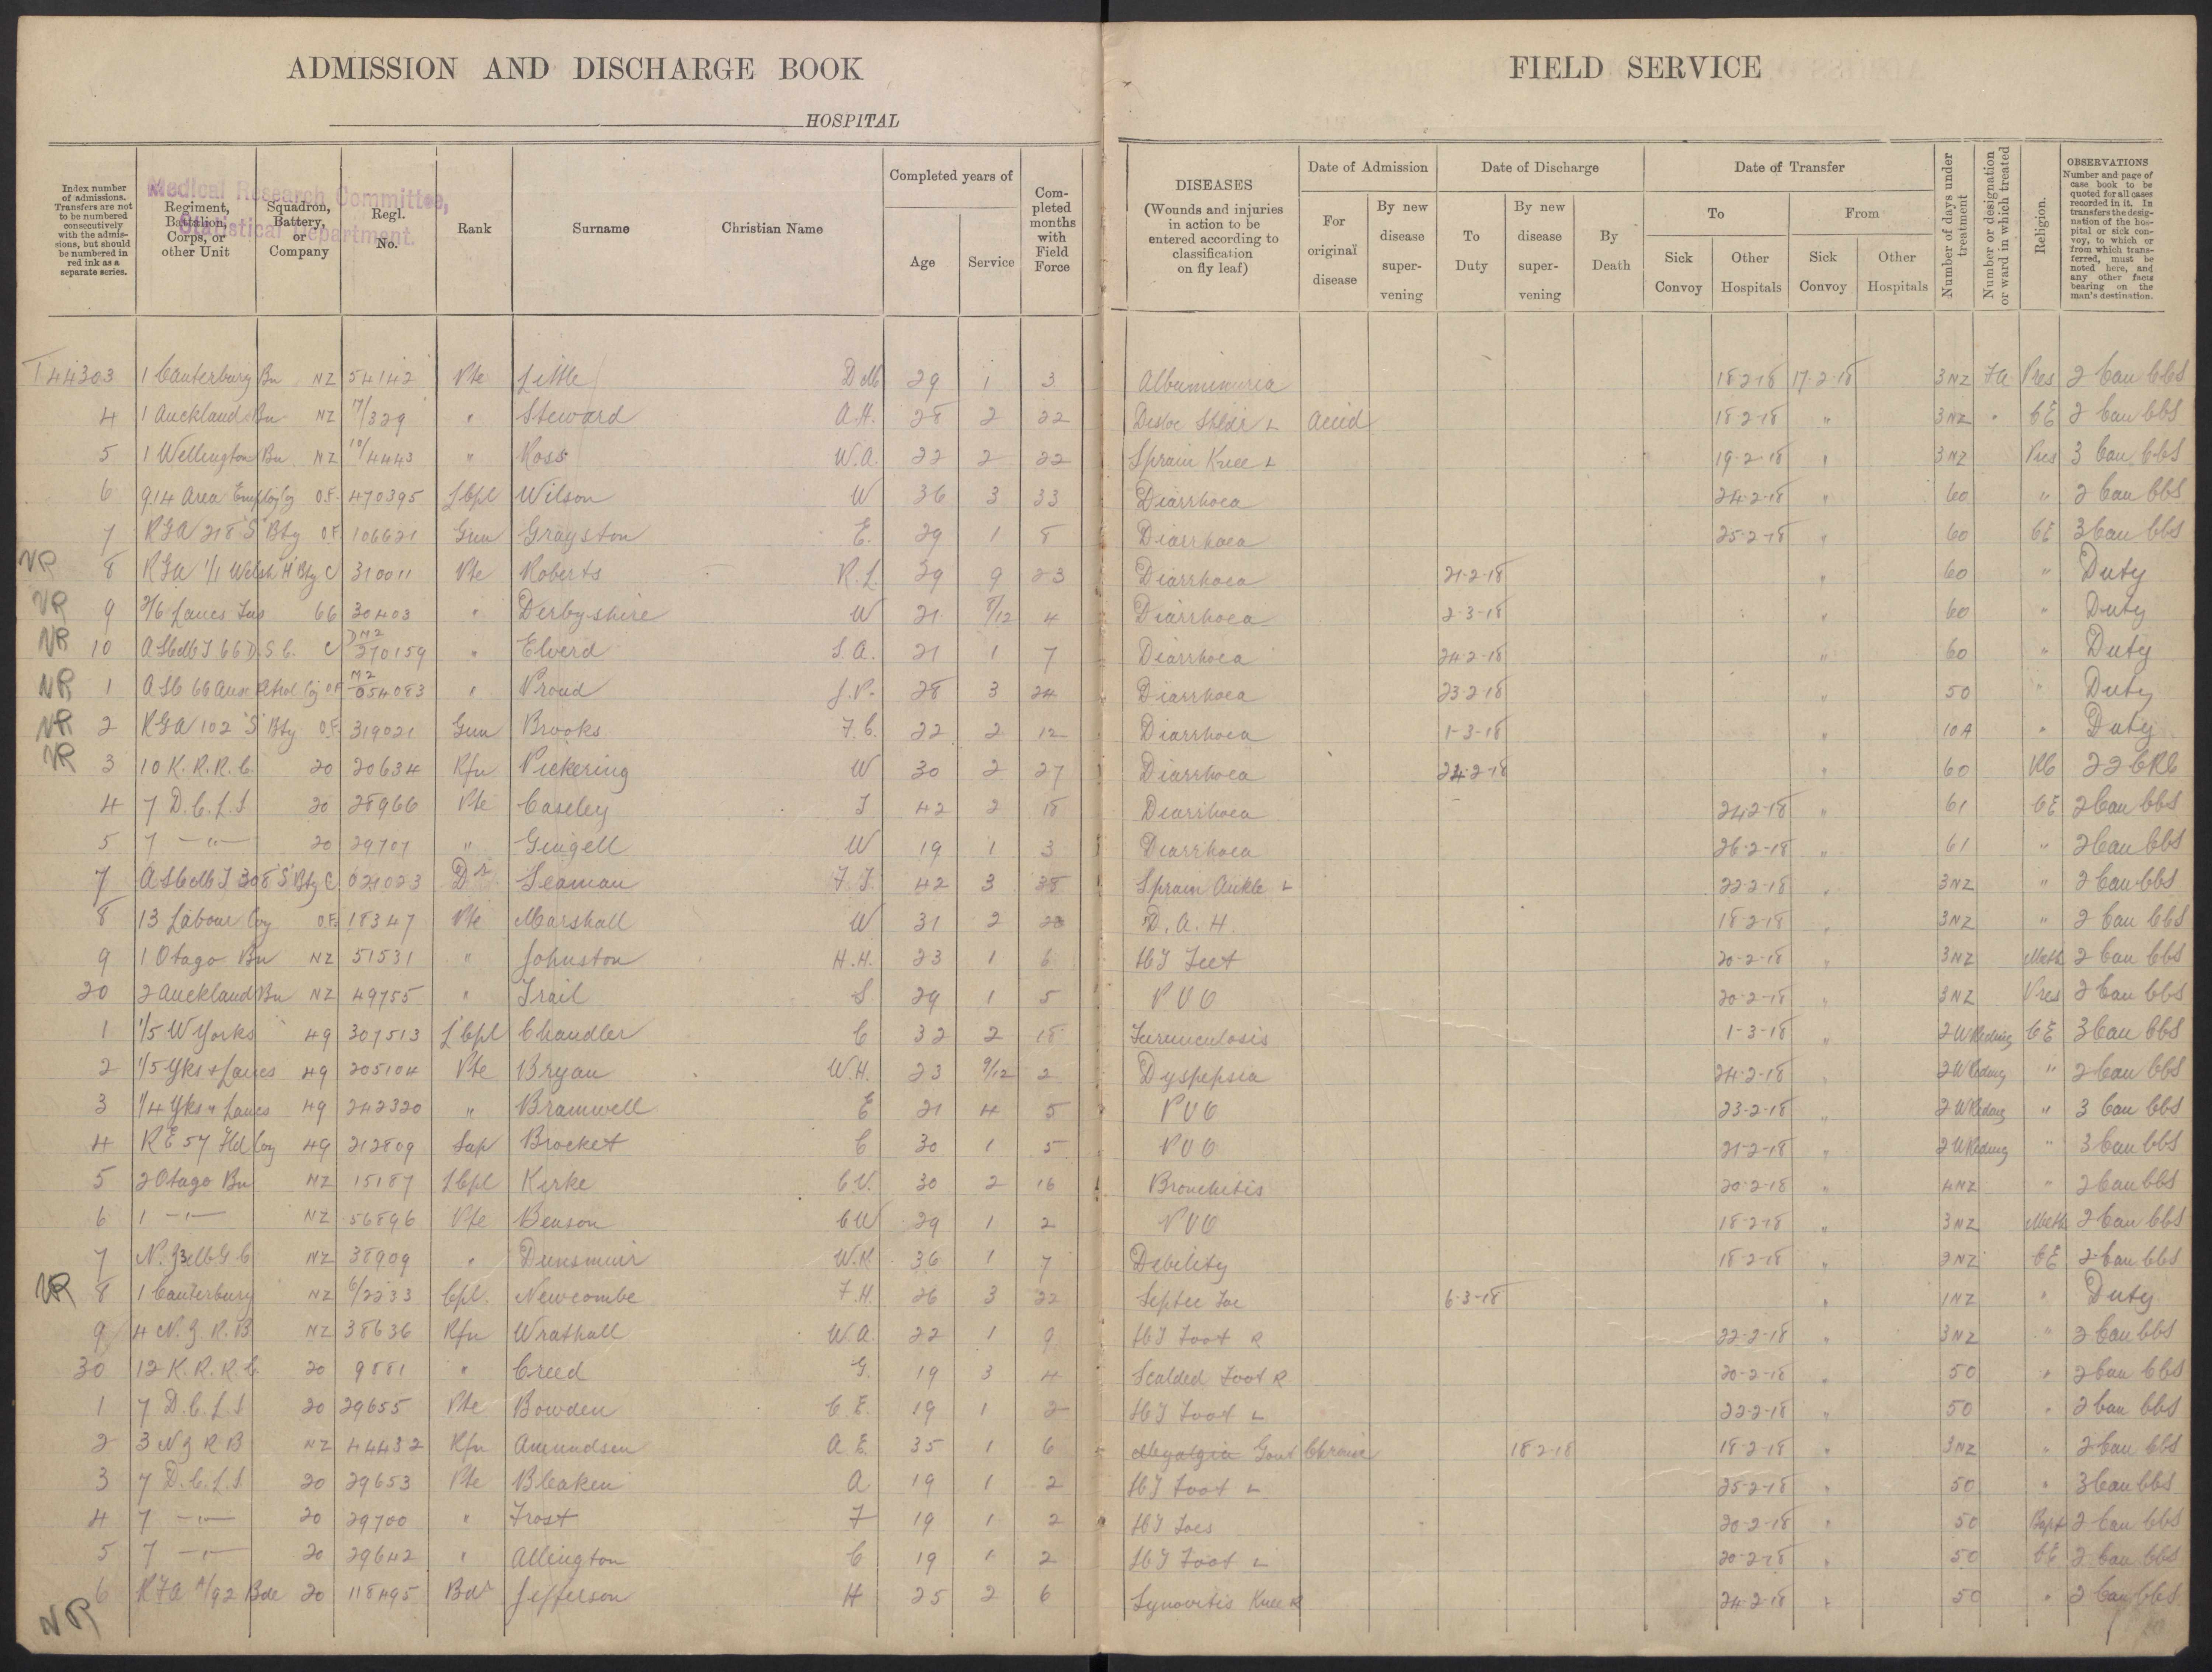 ADMISSION AND DISCHARGE BOOK
FIELD SERVICE
HOSPITAL
Medical Research Committee,
Statistical Department.
Index number of admissions. Transfers are not to be numbered consecutively with the admissions, but should be numbered in red ink as a separate series.
Regiment, Battalion, Corps, or other Unit
Squadron, Battery, or Company
Regl. No.
Rank
Surname
Christian Name
Completed years of
Age
Service
Completed months with Field Force
DISEASES
(Wounds and injuries in action to be entered according to classification on fly leaf)
Date of Admission
For original disease
By new disease supervening
Date of Discharge
To Duty
By new disease supervening
By Death
Date of Transfer
To
From
Sick Convoy
Other Hospitals
Sick Convoy
Other Hospitals
Number of days under treatment
Number or designation or ward in which treated
Religion.
OBSERVATIONS
Number and page of case book to be quoted for all cases recorded in it. In transfers the designation of the hospital or sick convoy, to which or from which transferred, must be noted here, and any other facts bearing on the man's destination.
T44303 1 Canterbury Bn NZ 54142 Pte Little D M 29 1 3 Albuminuria 18-2-18 17-2-18 3 NZ FA Pres 2 Can CCS
4 1 Auckland Bn NZ 7/329 " Steward A.H. 28 2 22 Disloc Shldr L Accid 18-2-18 " 3 NZ " CE 2 Can CCS
5 1 Wellington Bn NZ 10/4443 " Ross W.A. 22 2 22 Sprain Knee L 19-2-18 " 3 NZ Pres 3 Can CCS
6 914 Area Employ Cy O.F. 470395 LCpl Wilson W 36 3 33 Diarrhoea 24-2-18 " 60 " 2 Can CCS
7 RGA 218 'S' Bty OF 106621 Gun Grayston E. 29 1 8 Diarrhoea 25-2-18 " 60 CE 3 Can CCS
NR 8 RGA 1/1 Welsh 'H' Bty C 310011 Pte Roberts R.L. 29 9 23 Diarrhoea 21-2-18 " 60 " Duty
NR 9 2/6 Lancs Fus 66 30403 " Derbyshire W 21 8/12 4 Diarrhoea 2-3-18 " 60 " Duty
NR 10 ASC MT 66 D.S.C. C DM2 370159 " Elverd S.A. 21 1 7 Diarrhoea 24-2-18 " 60 " Duty
NR 1 ASC 66 Aux Petrol Cy OF M2 054083 " Proud J.P. 28 3 24 Diarrhoea 23-2-18 " 50 " Duty
NR 2 RGA 102 'S' Bty O.F. 319021 Gun Brooks F.C. 22 2 12 Diarrhoea 1-3-18 " 10A " Duty
NR 3 10 K.R.R.C. 20 20634 Rfn Pickering W 30 2 27 Diarrhoea 24-2-18 " 60 RC 22 CRC
4 7 D.C.L.I 20 28966 Pte Caseley T 42 2 18 Diarrhoea 24-2-18 " 61 CE 2 Can CCS
5 7 -"- 20 29707 " Gingell W 19 1 3 Diarrhoea 26-2-18 " 61 " 2 Can CCS
7 ASC MT 308 'S' Bty C 021023 Dr Seaman F.T. 42 3 38 Sprain Ankle L 22-2-18 " 3 NZ " 2 Can CCS
8 13 Labour Coy O.F. 18347 Pte Marshall W 31 2 28 D.A.H. 18-2-18 " 3 NZ " 2 Can CCS
9 1 Otago Bn NZ 51531 " Johnston H.H. 23 1 6 ICT Feet 20-2-18 " 3 NZ Meth 2 Can CCS
20 2 Auckland Bn NZ 49755 " Trail S 29 1 5 PUO 20-2-18 " 3 NZ Pres 2 Can CCS
1 1/5 W Yorks 49 307513 LCpl Chandler C 32 2 18 Furunculosis 1-3-18 " 2 W Riding CE 3 Can CCS
2 1/5 Yks & Lancs 49 205104 Pte Bryan W.H. 23 9/12 2 Dyspepsia 24-2-18 " 2 W Riding " 2 Can CCS
3 1/4 Yks & Lancs 49 242320 " Bramwell E 21 4 5 PUO 23-2-18 " 2 W Riding " 3 Can CCS
4 RE 57 Fld Coy 49 212809 Sap Brocket C 30 1 5 PUO 21-2-18 " 2 W Riding " 3 Can CCS
5 2 Otago Bn NZ 15187 LCpl Kirke C.V. 30 2 16 Bronchitis 20-2-18 " 4 NZ " 2 Can CCS
6 1 -"- NZ 56896 Pte Benson C W 29 1 2 PUO 18-2-18 " 3 NZ Meth 2 Can CCS
7 N.Z MGC NZ 38909 " Dunsmuir W.K. 36 1 7 Debility 18-2-18 " 2 NZ CE 2 Can CCS
NR 8 1 Canterbury NZ 6/2233 Cpl. Newcombe F.H. 26 3 22 Septic Toe 6-3-18 " 1 NZ " Duty
9 4 N.Z.R.B NZ 38636 Rfn Wrathall W.A. 22 1 9 ICT Foot R 22-2-18 " 3 NZ " 2 Can CCS
30 12 K.R.R.C. 20 9881 " Creed G. 19 3 4 Scalded Foot R 20-2-18 " 50 " 2 Can CCS
1 7 D.C.L.I 20 29655 Pte Bowden C.E. 19 1 2 ICT Foot L 22-2-18 " 50 " 2 Can CCS
2 3 NZRB NZ 44432 Rfn Amundsen A E. 35 1 6 Myalgia Gout Chronic 18-2-18 18-2-18 " 3 NZ " 2 Can CCS
3 7 D.C.L.I. 20 29653 Pte Bleaken A 19 1 2 ICT Foot L 25-2-18 " 50 " 3 Can CCS
4 7 -"- 20 29700 " Frost F 19 1 2 ICT Toes 20-2-18 " 50 Bapt 2 Can CCS
5 7 -"- 20 29642 " Allington C 19 1 2 ICT Foot L 20-2-18 " 50 CE 2 Can CCS
NR 6 RFA A/92 Bde 20 118495 Bdr Jefferson H 25 2 6 Synovitis Knee R 24-2-18 " 50 " 2 Can CCS